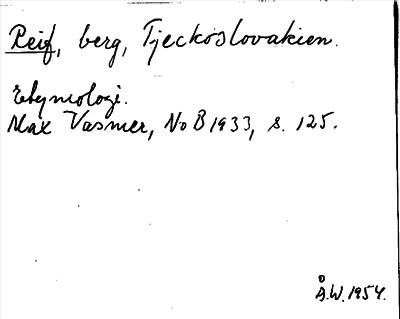 Reif, berg, Tjeckoslovakien.
Etymologi.
Max Vasmer, NoB 1933, s. 125.
Å.W. 1954.